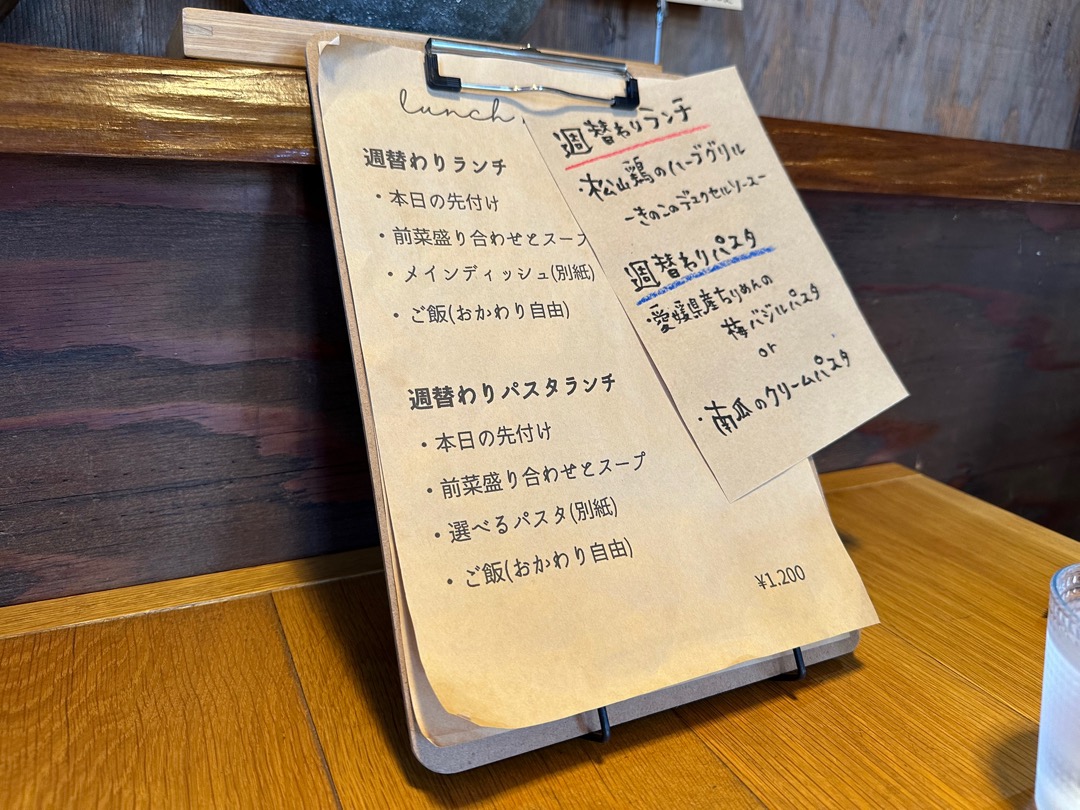 lunch
週替わりランチ
・本日の先付け
・前菜盛り合わせとスープ
・メインディッシュ(別紙)
・ご飯(おかわり自由)
週替わりパスタランチ
・本日の先付け
・前菜盛り合わせとスープ
・選べるパスタ(別紙)
・ご飯(おかわり自由)
¥1.200
週替わりランチ
・松山鶏のハーブグリル
－きのこのデュクセルソース－
週替わりパスタ
・愛媛県産ちりめんの
梅バジルパスタ
or
・南瓜のクリームパスタ